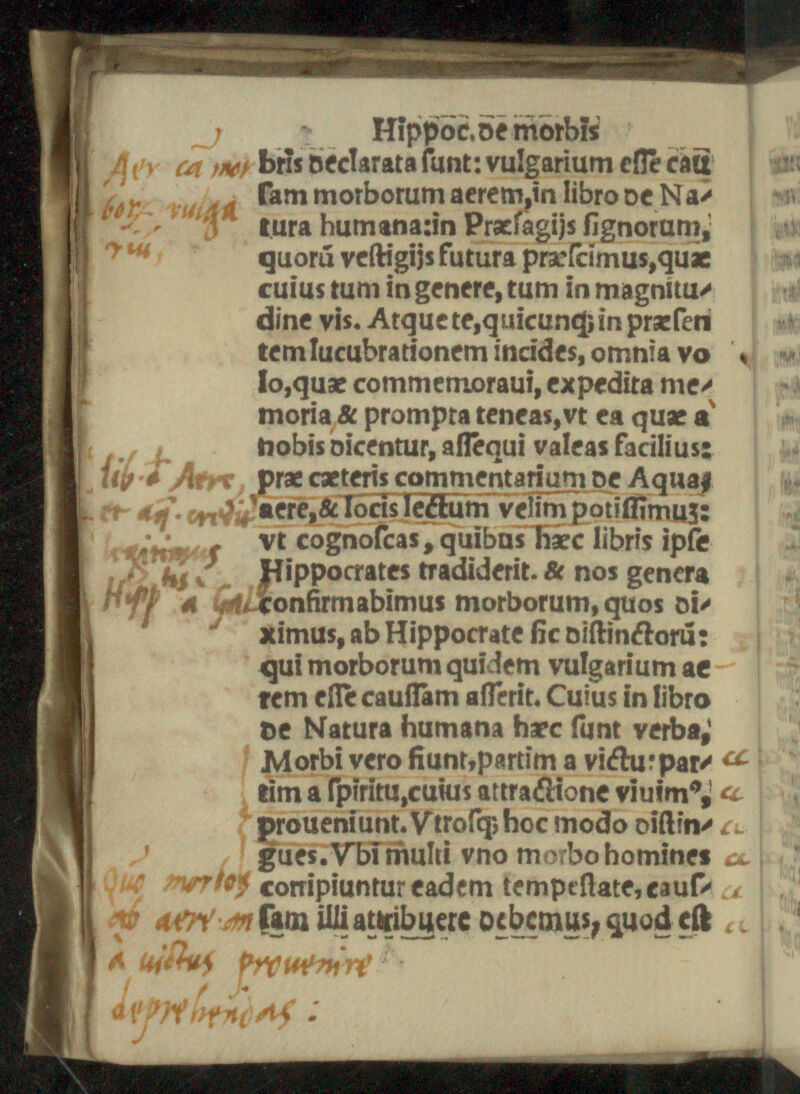 Hippoc. de morbis
bris declarata sunt: vulgarium esse cau
sam morborum aerem, in libro de Na⸗
tura humana: in Præsagijs signorum,
quorū vestigijs futura præscimus, quæ
cuius tum in genere, tum in magnitu⸗
dine vis. Atque te, quicunqꝫ in præsen
tem lucubrationem incides, omnia vo
lo, quæ commemoraui, expedita me⸗
moria & prompta teneas, vt ea quæ a
nobis dicentur, assequi valeas facilius:
præ cæteris commentarium de Aquaꝭ
aere, & locis lectum velim potissimuꝫ:
vt cognoscas, quibus hæc libris ipse
Hippocrates tradiderit. & nos genera
confirmabimus morborum, quos di⸗
ximus, ab Hippocrate sic distinctorū:
qui morborum quidem vulgarium ae
rem esse caussam asserit. Cuius in libro
de Natura humana hæc sunt verba,
Morbi vero fiunt, partim a victu: par⸗
tim a spiritu, cuius attractione viuimꝰ,
proueniunt. Vtrosqꝫ hoc modo distin⸗
gues. Vbi multi vno morbo homines
corripiuntur eadem tempestate, caus⸗
sam illi attribuere debemus, quod est
Aer ca mor
bor. vulga
riū,
lib. d Aere
et aq.
Hipp a Gal
Que morbos
ob aere an
a uictus prouenire
deprehendas :